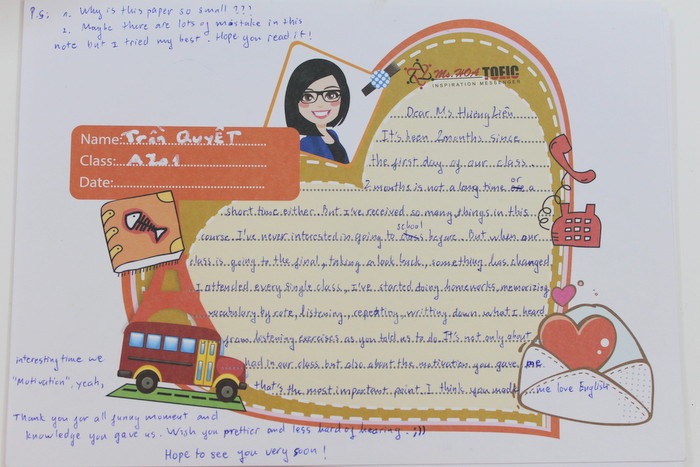 P.S: 1. Why is this paper so small ???
2. Maybe there are lots of mistake in this
note but I tried my best. Hope you read it!
Ms. HOA TOEIC
INSPIRATION MESSENGER
Name: Trần QUYẾT
Class: A201
Date:
Dear Ms Hương Liên
It's been 2 months since
the first day of our class.
2 months is not a long time or a
short time either. But I've received so many things in this
course. I've never interested in going to school before. But when our
class is going to the final, taking a look back, something has changed.
I attended every single class, I've started doing homeworks, memorizing
vocabulary by rote, listening, repeating, writting down what I heard
from listening exercises as you told us to do. It's not only about
interesting time we had in our class but also about the motivation you gave me
"Motivation", yeah, that's the most important point I think you made me love English
Thank you for all funny moment and
knowledge you gave us. Wish you prettier and less hard of hearing. :)))
Hope to see you very soon!